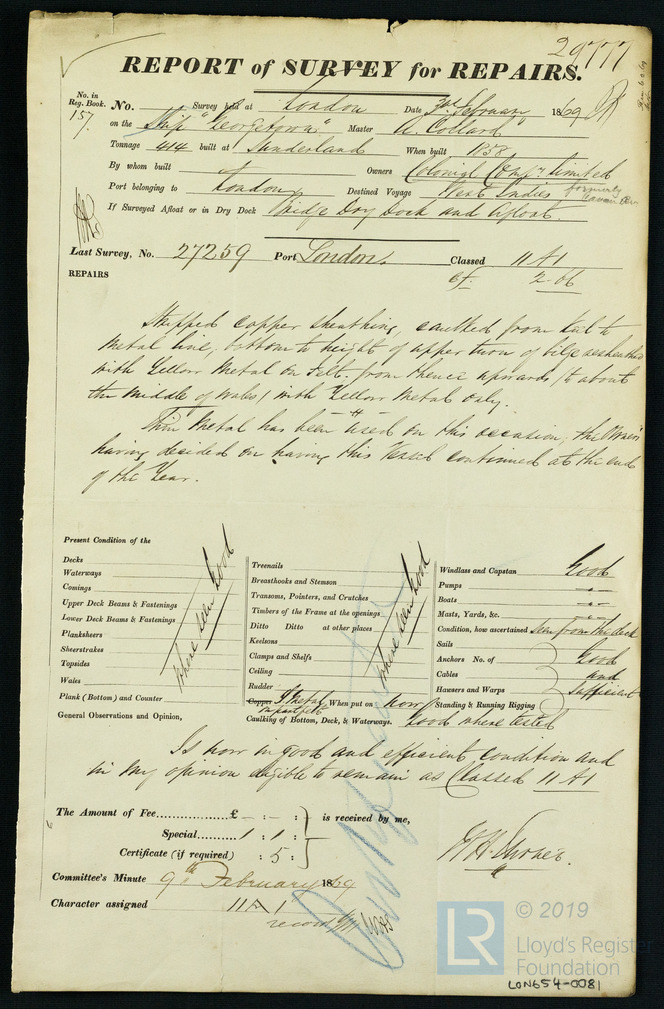 29777
REPORT of SURVEY for REPAIRS.
No. in Reg. Book. No. Survey held at London Date 3rd February 1869
157 on the Ship "Georgetown" Master A. Collard
Tonnage 414 built at Sunderland When built 1858
By whom built Owners Colonial Compy Limited
Port belonging to London Destined Voyage West Indies formerly
If Surveyed Afloat or in Dry Dock Bridge Dry Dock and Afloat
Last Survey, No. 27259 Port London. Classed 11 A1
REPAIRS cf. 2.66
Stripped copper sheathing, caulked from keel to
Metal line, bottom to height of upper turn of bilge
with Yellow Metal on Felt. from thence upwards (to about
the middle of Wales) with Yellow Metal only.
Thin Metal has been used on this occasion, the Owners
having decided on having this Vessel continued at the end
of the Year.
Present Condition of the
Decks
Waterways
Comings
Upper Deck Beams & Fastenings
Lower Deck Beams & Fastenings
Planksheers
Sheerstrakes
Topsides
Wales
Plank (Bottom) and Counter
where seen Good
General Observations and Opinion,
Treenails
Breasthooks and Stemson
Transoms, Pointers, and Crutches
Timbers of the Frame at the openings
Ditto Ditto at other places
Keelsons
Clamps and Shelfs
Ceiling
Rudder
where seen Good
Copper Y Metal on part felt When put on now
Caulking of Bottom, Deck, & Waterways. Good where tested
Windlass and Capstan Good
Pumps "
Boats "
Masts, Yards, &c. "
Condition, how ascertained seen from the deck
Sails
Anchors No. of Good
Cables and
Hawsers and Warps Sufficient
Standing & Running Rigging
Is now in good and efficient condition and
in my opinion eligible to remain as Classed 11 A1
The Amount of Fee............... £ - : - : is received by me,
Special......... 1 : 1 :
Certificate (if required) : 5 :
Committee's Minute 9th February 1869
Character assigned 11 A 1
LR
© 2019
Lloyd's Register
Foundation
LON654-0081